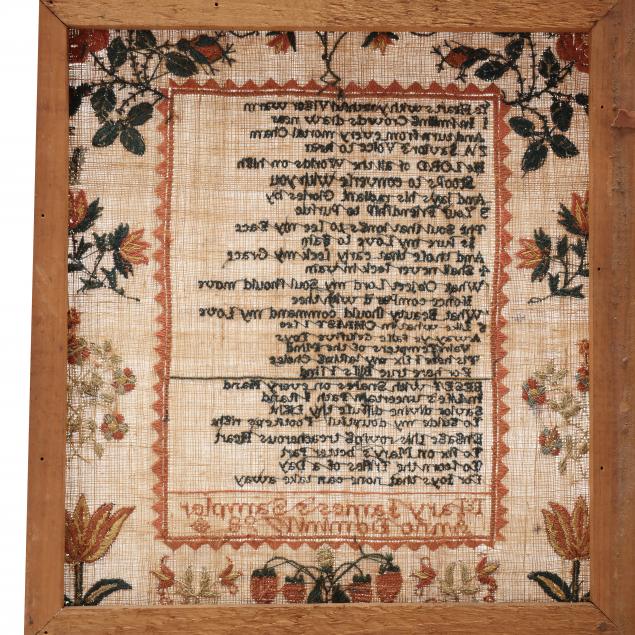 Ye Hearts with youthful Vigor warm
1 In smiling Crowds draw near
And turn from every mortal Charm
2 A Savior's Voice to hear
He LORD of all the Worlds on high
Stoops to converse With you
And lays his radiant Glories by
3 Your Friendship to Pursue
The Soul that longs to see my Face
Is sure my Love to Gain
And those that early seek my Grace
4 Shall never seek in vain
What Object Lord my Soul should move
If once compar'd with thee
What Beauty should command my Love
5 Like what in CHRIST I see
Away ye false delusive Toys
Vain Tempters of the Mind
Tis here I fix my lasting Choice
For here true Bliss I find
BESET with Snares on every Hand
In Life's uncertain Path I stand
Savior divine diffuse thy Light
To Guide my doubtful Footsteps right
Engage this roving treacherous Heart
To fix on Mary's better Part
To scorn the trifles of a Day
For Joys that none can take away
Mary James's Sampler
Anno Domini 1798